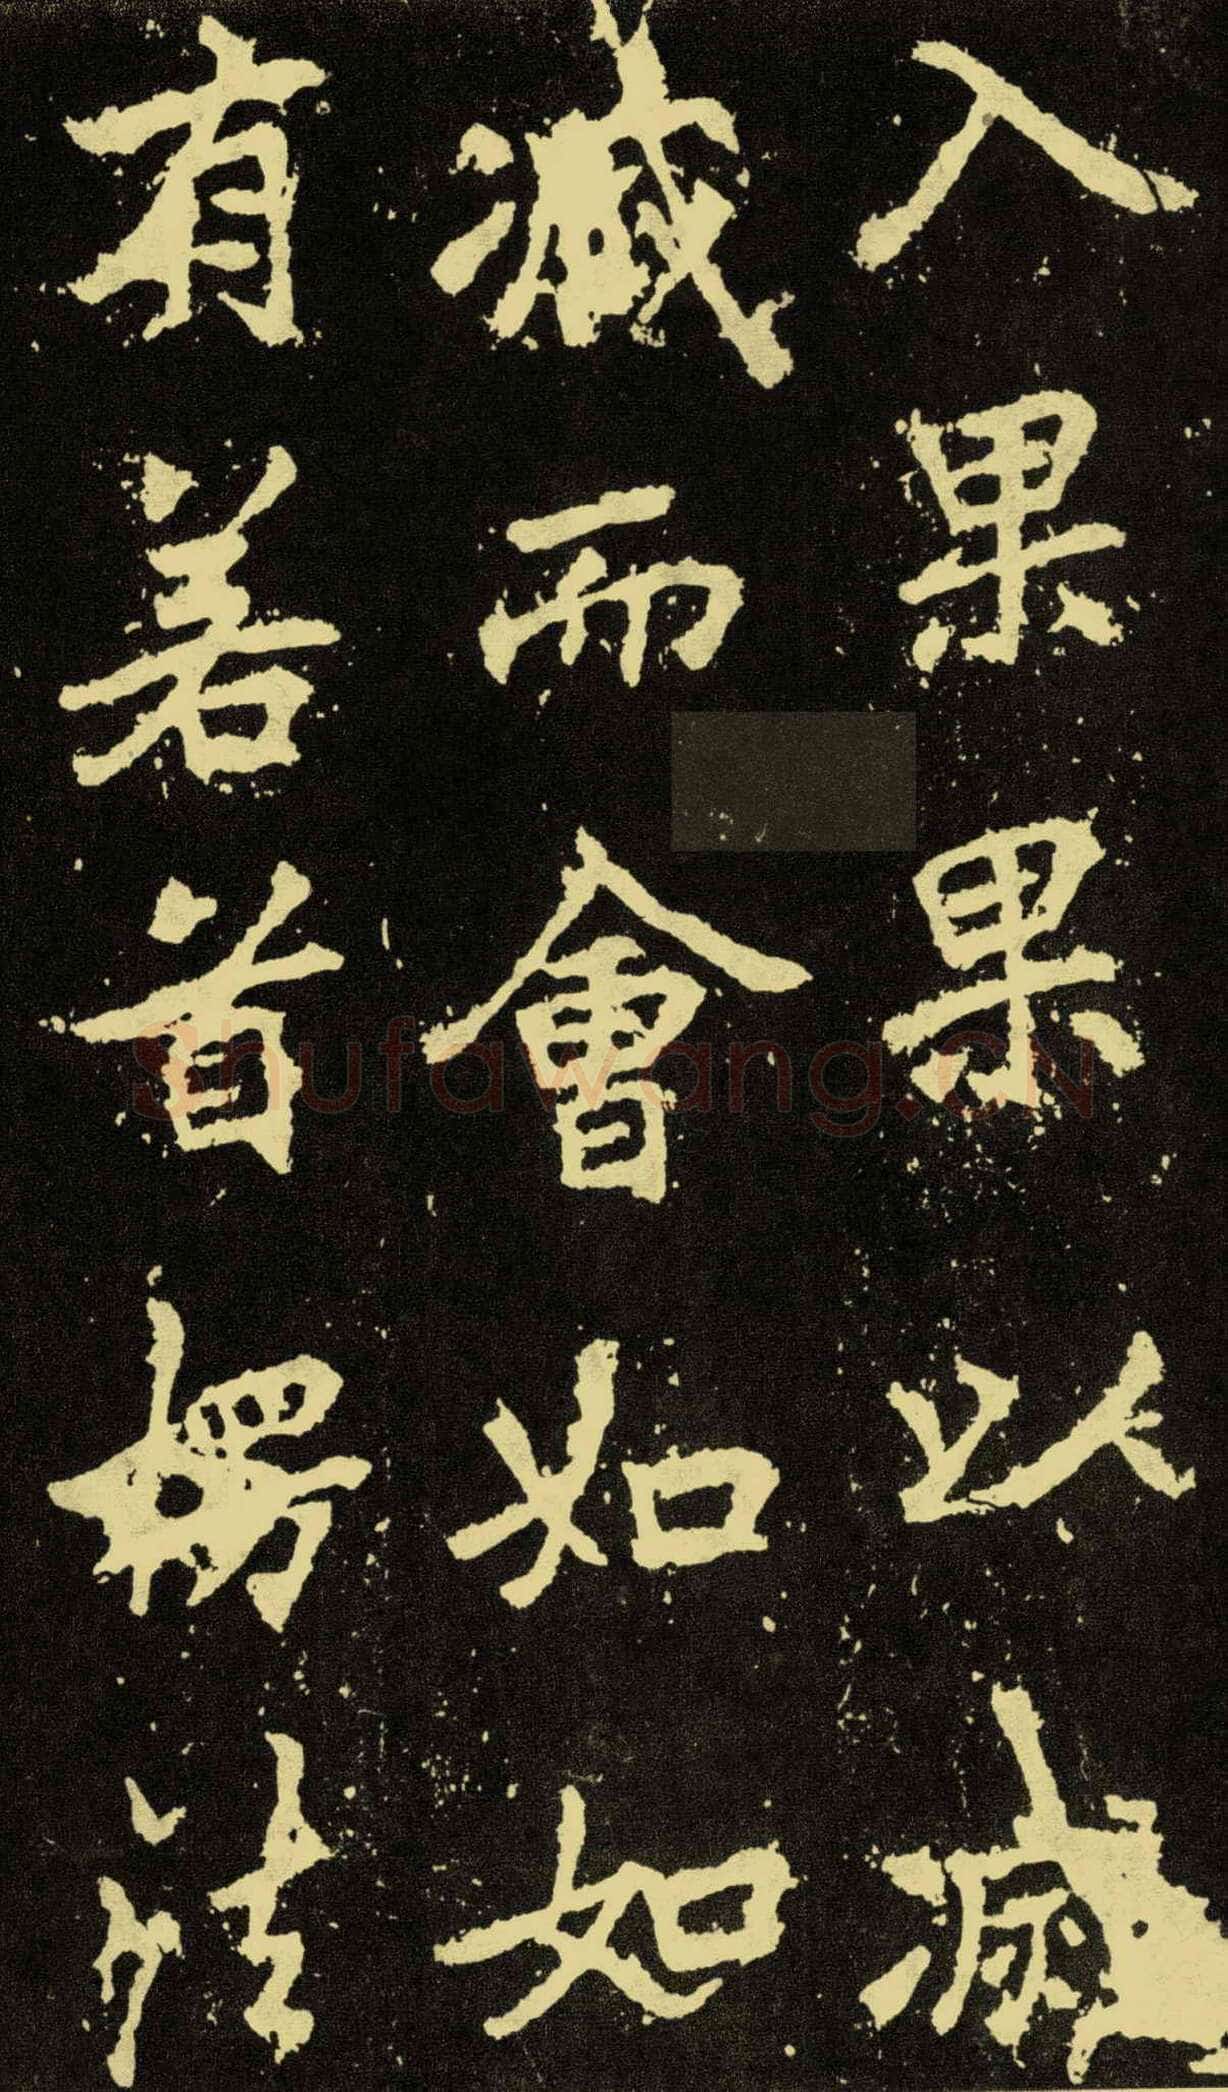 入果果以滅
滅而會如如
有若首楞法
Shufawang.CN